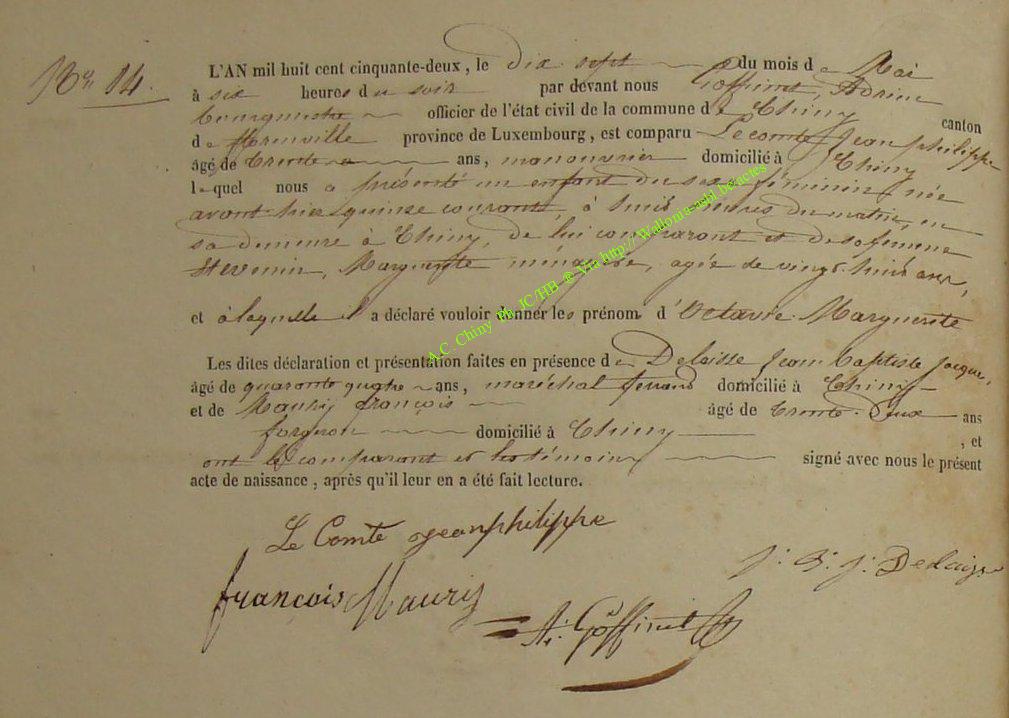 Nº 14.
L'AN mil huit cent cinquante-deux, le dix sept du mois de Mai
à six heures du soir par devant nous Goffinet, Adrien
bourgmestre officier de l'état civil de la commune de Chiny canton
de province de Luxembourg, est comparu Lecomte Jean philippe
âgé de trente ans, manouvrier domicilié à Chiny
lequel nous a présenté un enfant du sexe féminin née
avant hier quinze courant, à huit heures du matin, en
sa demeure à Chiny, de lui comparant et de sa femme
Stevenin, Marguerite ménagère, agée de vingt huit ans,
et à laquelle il a déclaré vouloir donner les prénom d'Octavie Marguerite
Les dites déclaration et présentation faites en présence de Delaisse Jean baptiste Jacque,
âgé de quarante quatre ans, maréchal ferrand domicilié à Chiny
et de Maury françois âgé de trente deux ans
forgeron domicilié à Chiny , et
ont le comparant et les témoins signé avec nous le présent
acte de naissance, après qu'il leur en a été fait lecture.
Le Comte jeanphilippe
J. B. J. Delaisse
françois Maury
A. Goffinet
A.C. Chiny Ph JC/HB @ Via http://Wallonia-asbl.be/actes